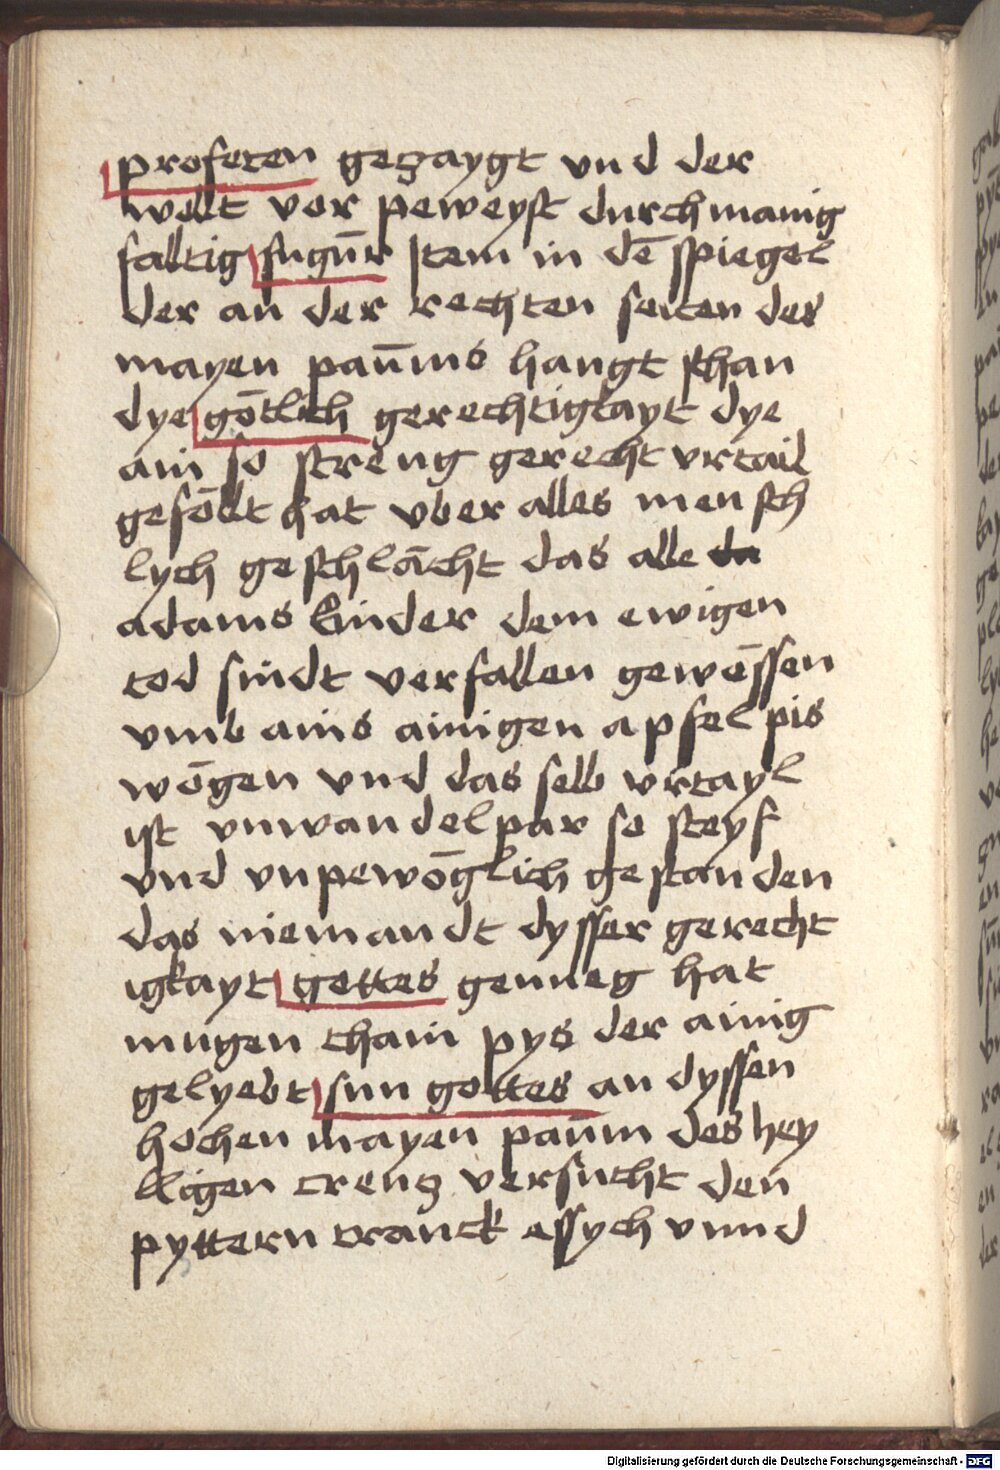 profeten gezaygt vnd der
wellt vor peweyst durch manig
falltig fugūr Jtem in dē spiegel
der an der rechten seiten des
mayen paūms hangt schan
dye gōtlich gerechtigkayt dye
ain so streng gerecht vrtail
gefōllt hat vber alles mensch
lych geschlācht das alle da
adams kinder dem ewigen
tod sindt verfallen gewēssen
vmb ains ainigen apfel pis
wōgen vnd das selb vrtayl
ist vnwandelpar so steyf
vnd vnpewōglich gestanden
das niemandt dysser gerecht
igkayt gottes genueg hat
mugen thain pys der ainig
gelyebt sun gottes an dyssen
hochen mayen paūm des hey
lligen creuz versucht den
pyttern tranck essych vnnd
Digitalisierung gefördert durch die Deutsche Forschungsgemeinschaft - DFG